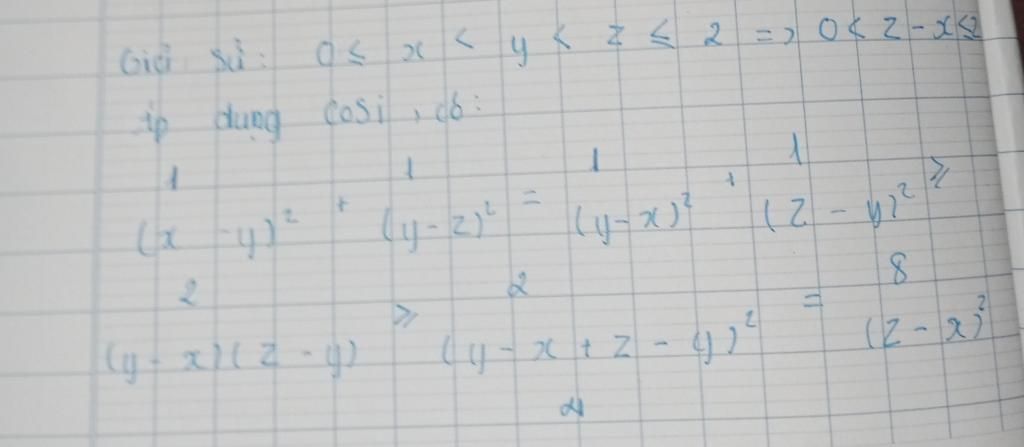 Giả sử: 0 ≤ x < y < z ≤ 2 => 0 < z - x ≤ 2
áp dụng cosi, có:
1/(x - y)² + 1/(y - z)² = 1/(y - x)² + 1/(z - y)² ≥
2/((y - x)(z - y)) ≥ 2/((y - x + z - y)²/4) = 8/(z - x)²